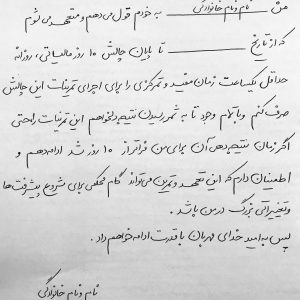 من نام و نام خانوادگی به خودم قول می‌دهم و متعهد می‌شوم
که از تاریخ تا پایان چالش ۱۰ روز مالیاتی، روزانه
حداقل یکساعت زمان مفید و تمرکزی را برای اجرای تمرینات این چالش
صرف کنم و با تمام وجود تا به ثمر رسیدن نتیجه دلخواهم این تمرینات را حتی
اگر زمان نتیجه دهی آن برای من فراتر از ۱۰ روز شد ادامه دهم و
اطمینان دارم که این تعهد و تمرین می‌تواند گام محکمی برای شروع پیشرفت‌ها
و تغییراتی بزرگ در من باشد.
پس به امید خدای مهربان با قدرت ادامه خواهم داد.
نام و نام خانوادگی